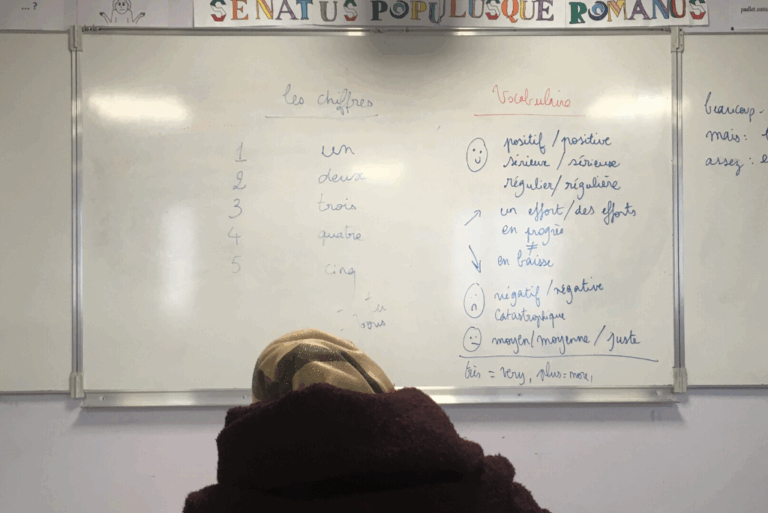 ... ?
SENATUS POPULUSQUE ROMANUS
les chiffres
1 un
2 deux
3 trois
4 quatre
5 cinq
vous
Vocabulaire
positif / positive
sérieux / sérieuse
régulier / régulière
un effort / des efforts
en progrès
≠
en baisse
négatif / négative
catastrophique
moyen / moyenne / juste
très = very, plus = more,
beaucoup
mais :
assez :